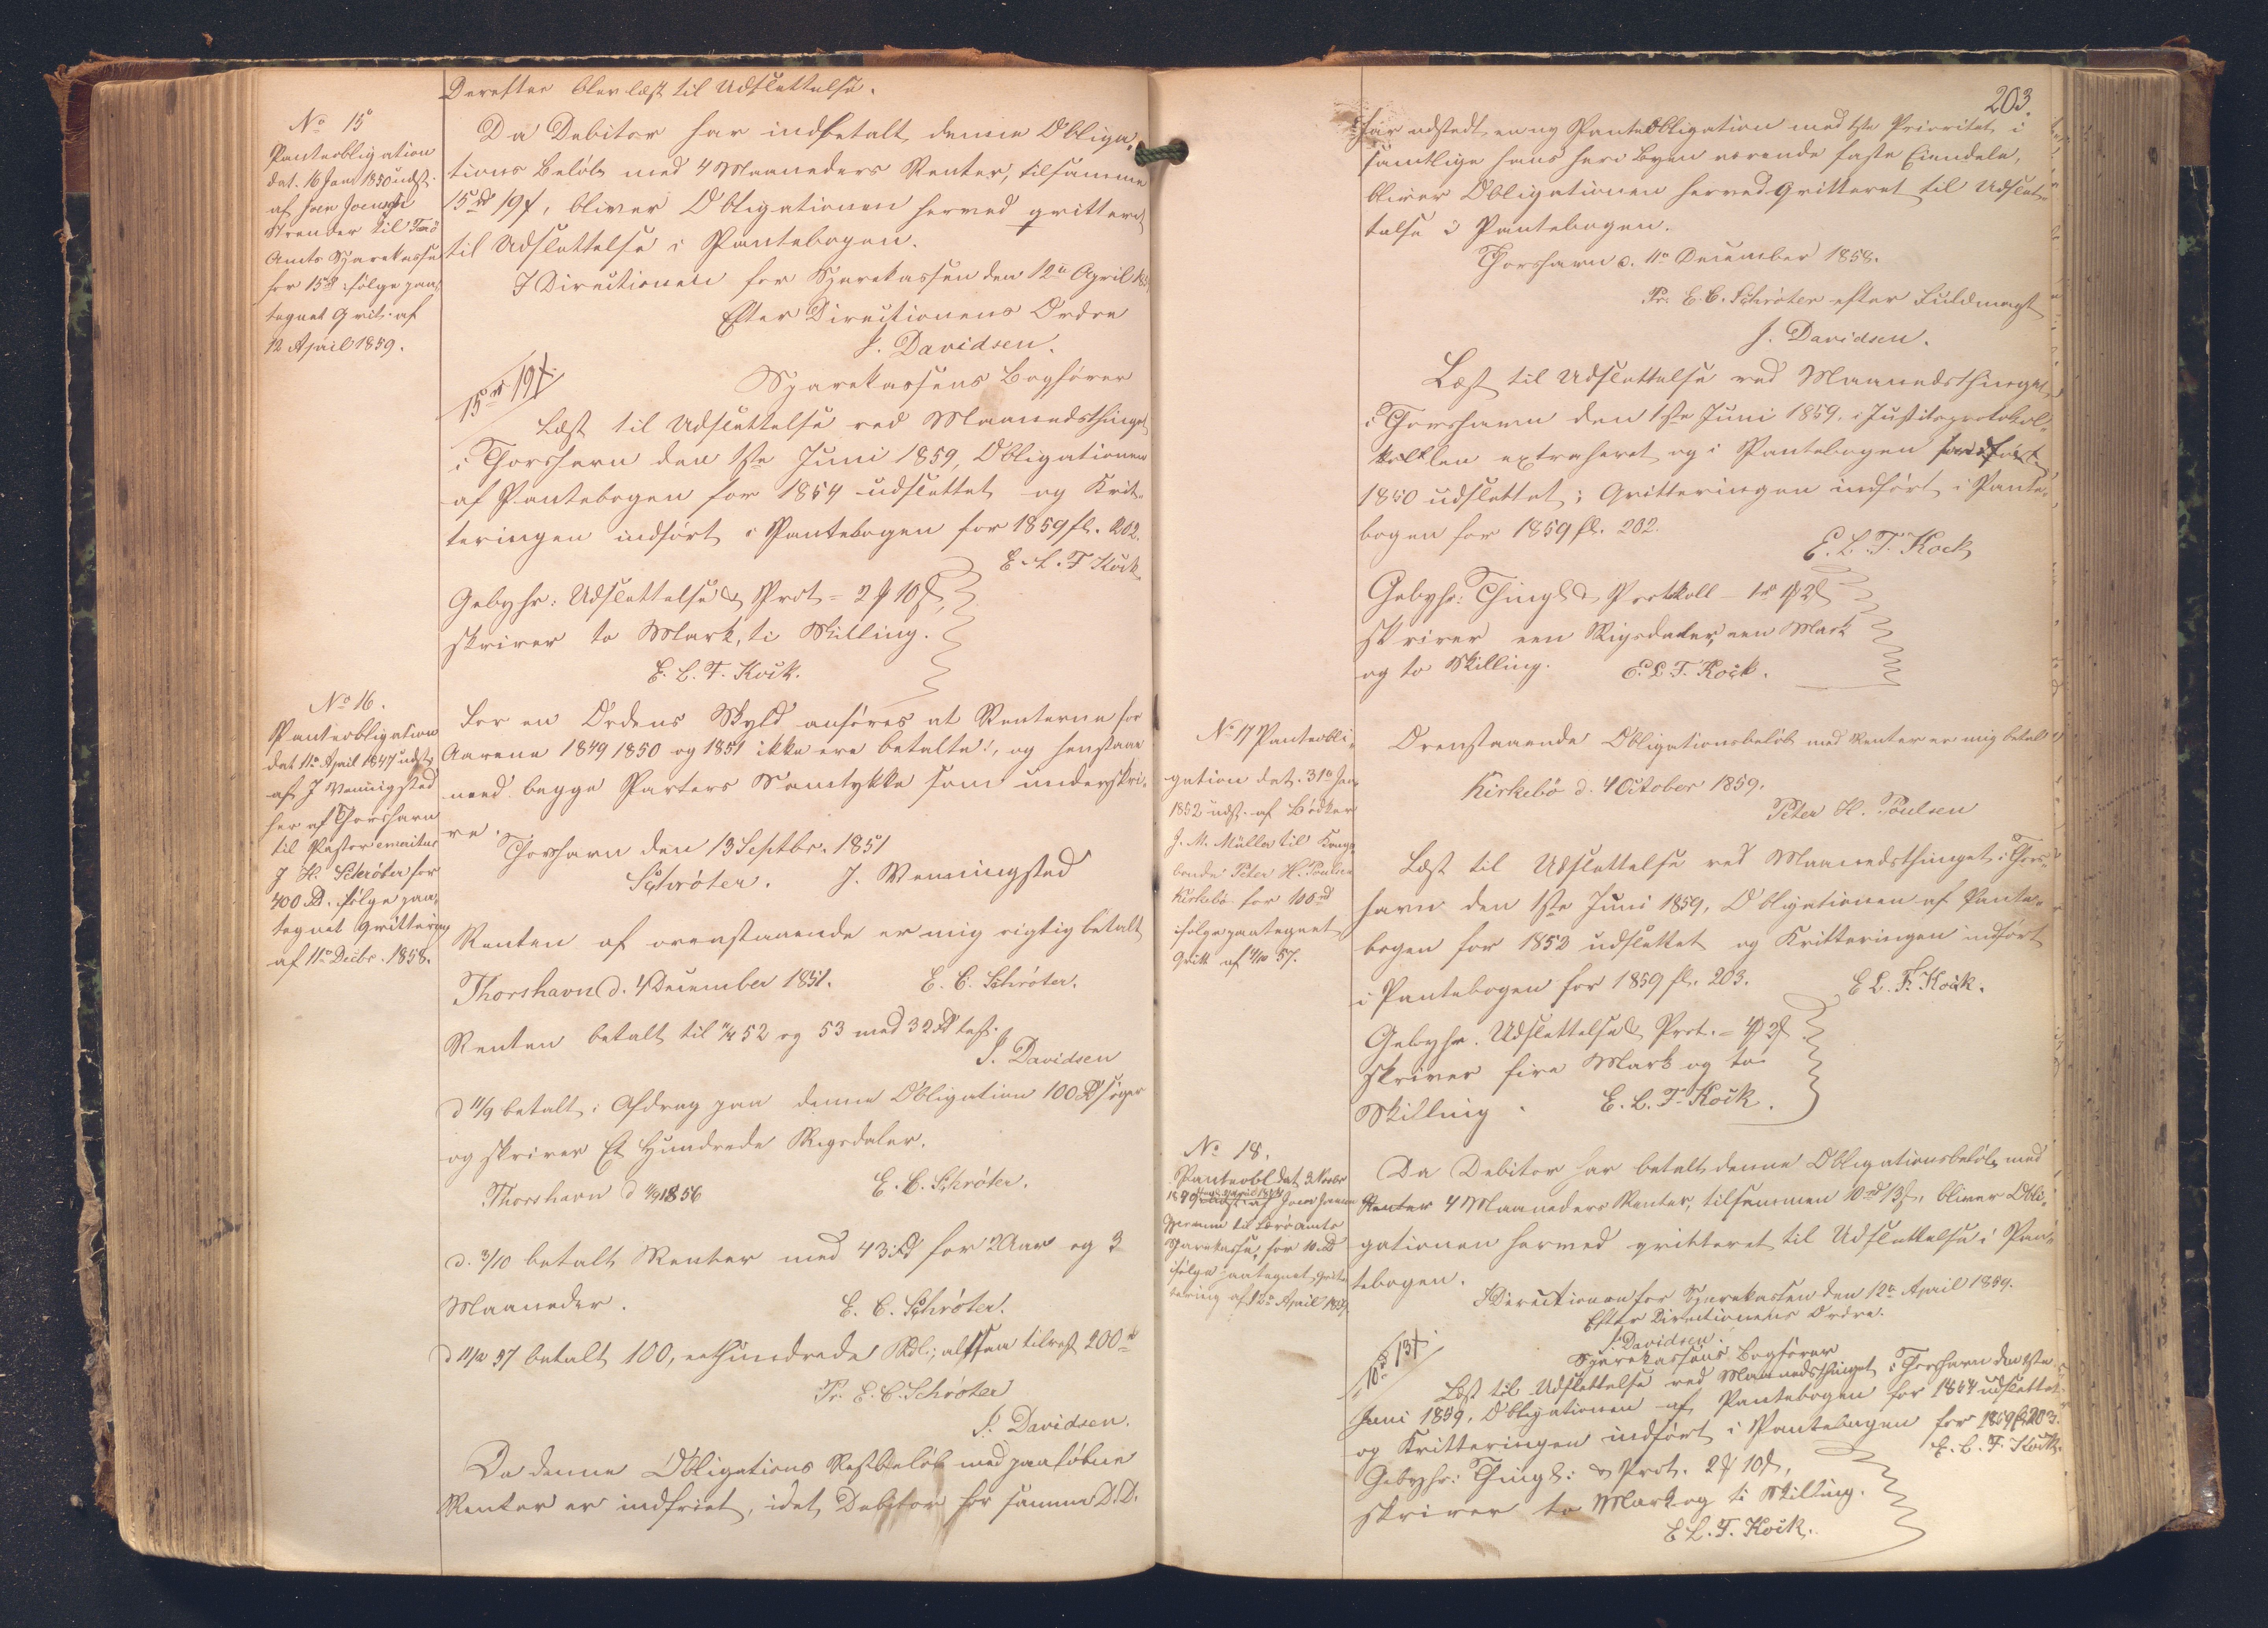 Derefter blev læst til Udslettelse.
No 15
Panteobligation
dat. 16 Jan 1850 udst.
af Joen Joensen
Strender til Færö
Amts Sparekasse
for 15 rd ifølge paa-
tegnet Qvit. af
12 April 1859.
Da Debitor har indbetalt denne Obliga-
tions Beløb med 4 Maaneders Renter, tilsammen
15 rd 19 s, bliver Obligationen herved qvitteret
til Udslettelse i Pantebogen.
I Directionen for Sparekassen den 12te April
Efter Directionens Ordre
J. Davidsen.
Sparekassens Bogfører
15 rd 19 s
Læst til Udslettelse ved Maanedsthinget
i Thorshavn den 1ste Juni 1859, Obligationen
af Pantebogen for 1854 udslettet og Kvit-
teringen indført i Pantebogen for 1859 fl. 202.
E. L. T. Kock
Gebyhr: Udslettelse & Prot = 2 # 10 s,
skriver to Mark, ti Skilling.
E. L. T. Kock.
No 16.
Panteobligation
dat 11te April 1847 udst.
af J Wenningsted
her af Thorshavn
til Pastor emeritus
J H. Schrøter for
400 rd. ifølge paa-
tegnet Qvittering
af 11te Decbr. 1858.
For en Ordens Skyld anføres at Renterne for
Aarene 1849 1850 og 1851 ikke ere betalte, og henstaae
med begge Parters Samtykke som underskri-
ve.
Thorshavn den 13 Septbr. 1851
Schrøter. J. Wenningsted
Renten af ovenstaaende er mig rigtig betalt
Thorshavn d. 4 December 1851. E. C. Schrøter.
Renten betalt til 11/4 52 og 53 med 32 rd test.
J. Davidsen
d 11/9 betalt i Afdrag paa denne Obligation 100 rd siger
og skriver Et Hundrede Rigsdaler.
Thorshavn d 11/9 1856 E. C. Schrøter.
d. 3/10 betalt Renter med 43 rd for 2 Aar og 3
Maaneder. E. C. Schrøter.
57 betalt 100, eethundrede Rdl.; altsaa tilrest 200 rd
Pr. E. C. Schrøter
J. Davidsen.
Da denne Obligations Restbeløb med paaløbne
Renter er indfriet, idet Debitor for samme D. D.
203.
har udstedt en ny PanteObligation med 1ste Prioritet i
samtlige hans her i Byen værende faste Eiendele,
bliver Obligationen herved Qvitteret til Udslet-
telse i Pantebogen.
Thorshavn d. 11te December 1858.
Pr. E. C. Schrøter efter Fuldmagt
J. Davidsen.
Læst til Udslettelse ved Maanedsthinget
i Thorshavn den 1ste Juni 1859. i Justitsprotokol-
kollen extraheret og i Pantebogen
1850 udslettet; Qvitteringen indført i Pante-
bogen for 1859 fl. 202.
E. L. T. Kock
Gebyhr: Thingl. & Protkoll - 1 rd 1 # 2 s
skriver een Rigsdaler, een Mark
og to Skilling. E. L. T. Kock.
No 17 Panteobli-
gation dat. 31te Jan
1852 udst. af Bødker
J. M. Müller til Konge-
bonde Peter H. Poulsen
Kirkebø for 100 rd
ifølge paategnet
Qvitt af 4/10 57.
Ovenstaaende Obligationsbeløb med Renter er mig betalt
Kirkebø d. 4 October 1859.
Peter H. Poulsen
Læst til Udslettelse ved Maanedsthinget i Thors-
havn den 1ste Juni 1859, Obligationen af Pante-
bogen for 1852 udslettet og Kvitteringen indført
i Pantebogen for 1859 fl. 203. E L. T. Kock.
Gebyhr. Udslettelse & Prot. = 4 # 2 s
skriver fire Mark og to
Skilling. E. L. T. Kock.
No 18.
Panteobl dat 3 Novbr
1849 udst. af Joen Joensen
til Færö Amts
Sparekasse, for 10 rd
ifølge paategnet Qvit-
tering af 12te April 1859.
Da Debitor har betalt denne Obligationsbeløb med
Renter 4 Maaneders Renter, tilsammen 10 rd 13 s, bliver Obli-
gationen herved qvitteret til Udslettelse i Pan-
tebogen.
I Directionen for Sparekassen den 12te April 1859.
Efter Directionens Ordre.
J. Davidsen.
Sparekassens Bogfører
10 rd 13 s
Læst til Udslettelse ved Maanedsthinget i Thorshavn den 1ste
Juni 1859. Obligationen af Pantebogen for 1854 udslettet
og Kvitteringen indført i Pantebogen for 1859 fl 203.
E. L. T. Kock.
Gebyhr: Thingl: & Prot. 2 # 10 s,
skriver to Mark og ti Skilling.
E L. T. Kock.